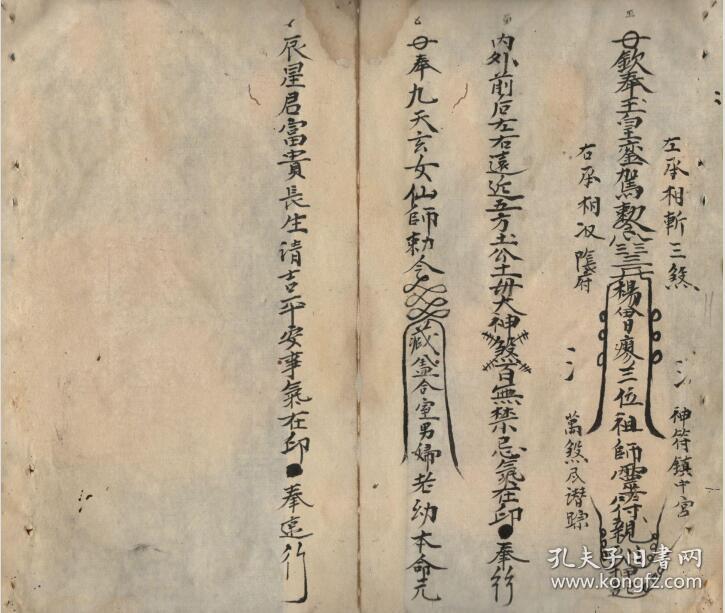 左丞相斬三煞
神符鎮中宮
奉玉皇鑾駕敕令楊曾廖三位祖師靈符親
右丞相収陰府
萬煞尽潜踪
内外前后左右遠近五方土公土母大神煞百無禁忌氣在印●奉行
奉九天玄女仙師勅令藏盖合室男婦老幼本命元
辰星君富貴長生清吉平安事氣在印●奉遠行
孔夫子旧书网
www.kongfz.com